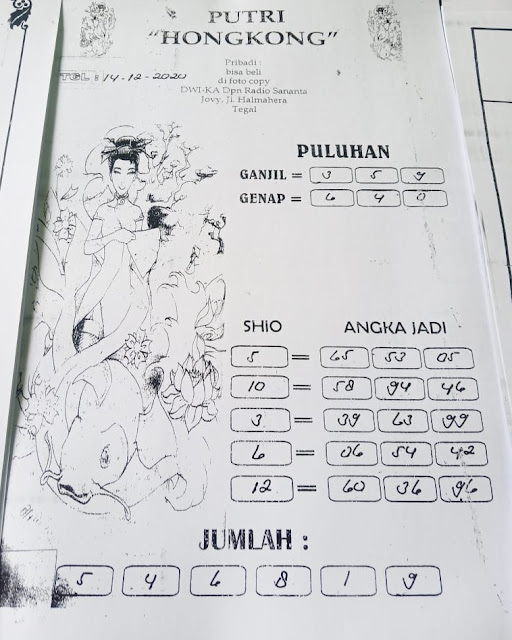 PUTRI
"HONGKONG"
Pribadi :
bisa beli
di foto copy
DWI-KA Dpn Radio Sananta
Jovy, Jl. Halmahera
Tegal
TGL : 14-12-2020
PULUHAN
GANJIL = 3 5 9
GENAP = 6 4 0
SHIO ANGKA JADI
5 = 65 53 05
10 = 58 94 46
3 = 39 63 99
6 = 06 54 42
12 = 60 36 96
JUMLAH :
5 4 6 8 1 9